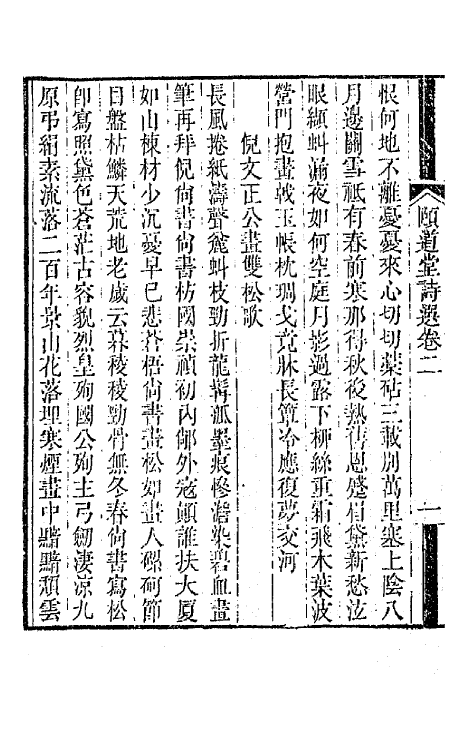 頤道堂詩選卷二
一
恨何地不離憂憂來心切切藁砧三載別萬里塞上陰八
月邊關雪祗有春前寒那得秋後熱舊恩殘眉黛新愁泣
眼纈蚪漏夜如何空庭月影過露下柳絲重霜飛木葉波
營門抱畫戟玉帳枕琱戈竟牀長簟冷應復夢交河
倪文正公畫雙松歌
長風捲紙濤聲龕蚪枝勁折龍髯孤墨痕慘澹染碧血畫
筆再拜倪尙書尙書枋國崇禎初內郞外寇顚誰扶大厦
如山棟材少沉憂早已悲蒼梧尙書畫松如畫人磥砢節
目盤枯鱗天荒地老歲云暮稜稜勁骨無冬春尙書寫松
卽寫照黛色蒼茫古容貌烈皇殉國公殉主弓劒淒涼九
原弔絹素流落二百年景山花落埋寒煙畫中黯黯頹雲